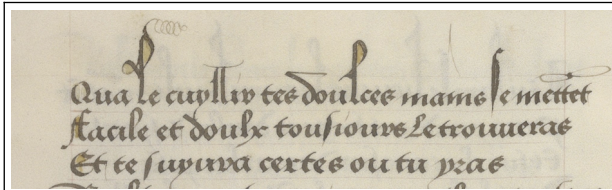 Qua le cuyllir tes doulces mains se mettet
Facile et doulx tousiours le trouueras
Et te suyura certes ou tu yras